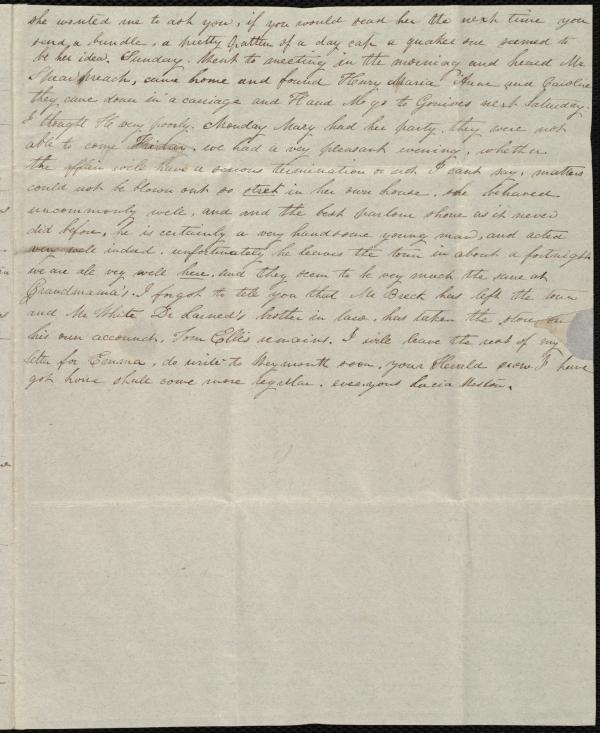 she wanted me to ask you, if you would send her the next time you
send a bundle, a pretty pattern of a day cap a quaker one seemed to
be her idea. Sunday. Went to meeting in the morning and heard Mr
Shear preach, came home and found Henry Maria Anne and Caroline
they came down in a carriage and H and M go to Gonives next Saturday.
I thought H very poorly. Monday Mary had her party, they were not
able to come Friday. we had a very pleasant evening, whether
the affair will have a serious termination or not I cant say, matters
could not be blown out so street in her own house, she behaved
uncommonly well, and and the best parlour shone as it never
did before, he is certainly a very handsome young man, and acted
very well indeed. unfortunately he leaves the town in about a fortnight
we are all very well here, and they seem to be very much the same at
Grandmama's. I forgot to tell you that Mr Breck has left the town
and Mr White Dr Larned's brother in law, has taken the store on
his own account, Tom Ellis remains. I will leave the rest of my
letter for Emma, do write to Weymouth soon, your Herald now I have
got home shall come more regular. ever yours Lucia Weston.